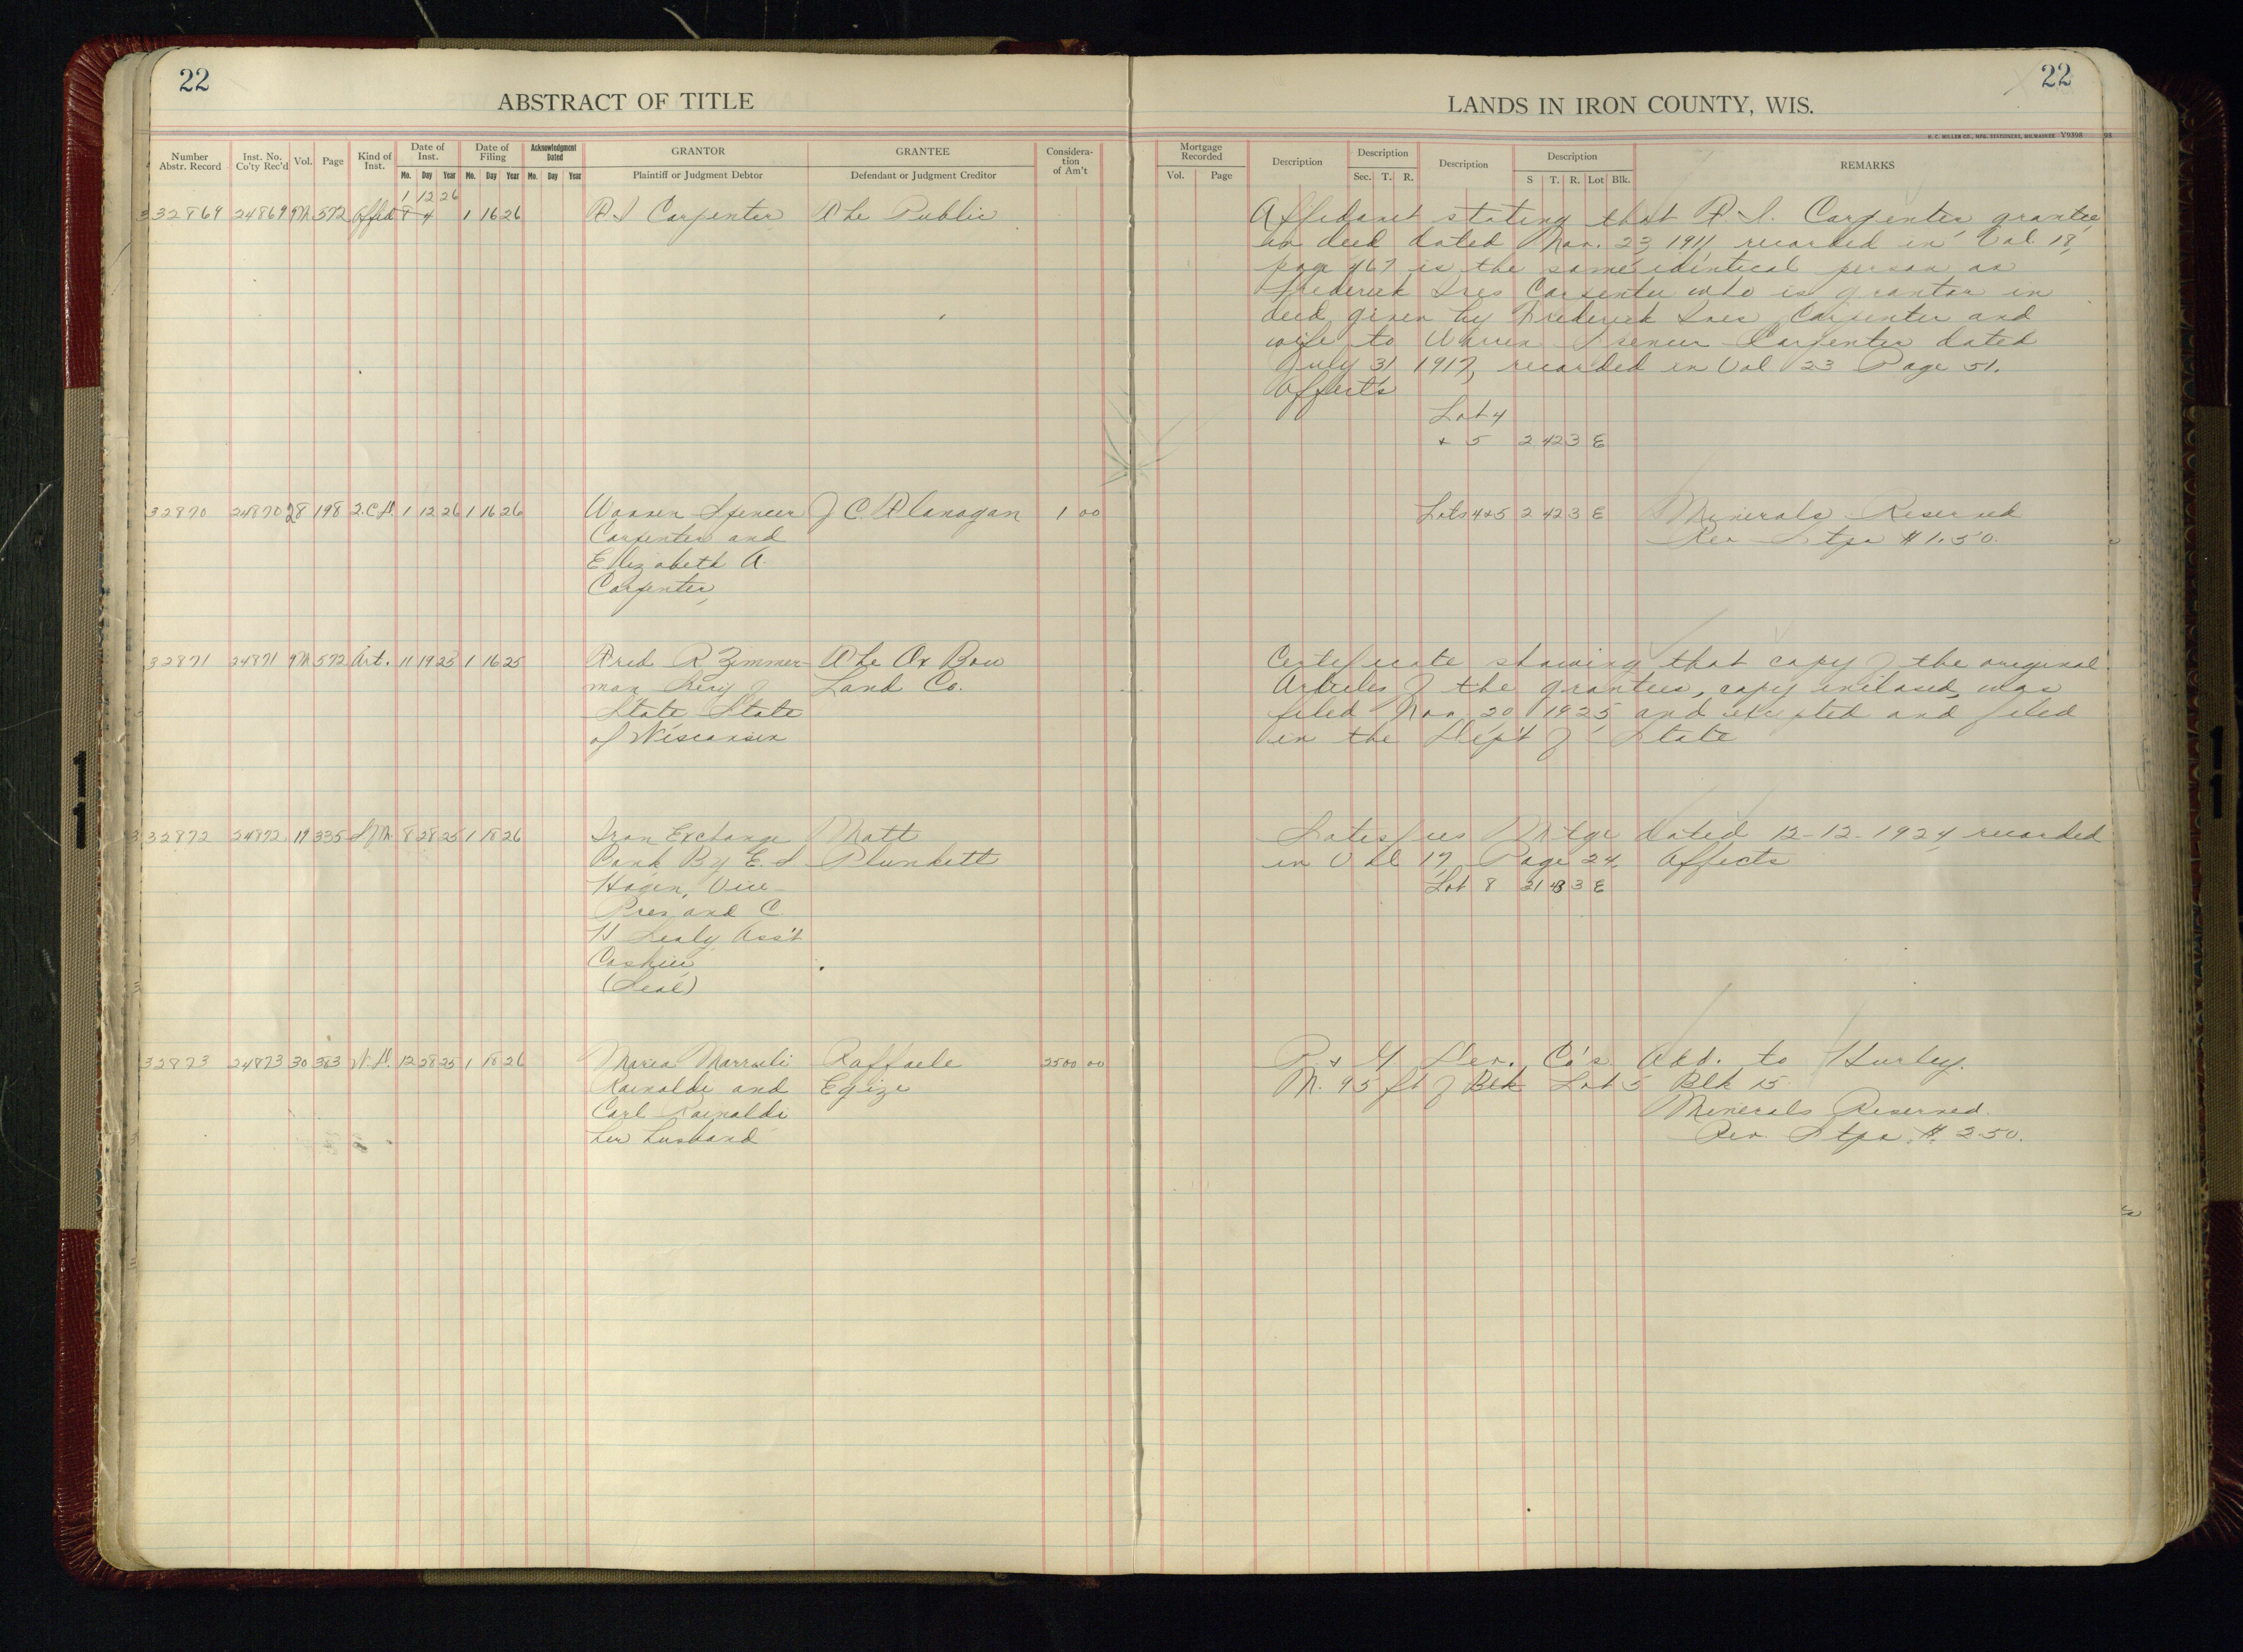 22
ABSTRACT OF TITLE
Number Abstr. Record
Inst. No. Co'ty Rec'd
Vol.
Page
Kind of Inst.
Date of Inst.
Mo. Day Year
Date of Filing
Mo. Day Year
Acknowledgment Dated
Mo. Day Year
GRANTOR
Plaintiff or Judgment Debtor
GRANTEE
Defendant or Judgment Creditor
Considera-tion of Am't
1 12 26
32869 24869 9M 572 Affid 8 4 1 16 26 F I Carpenter The Public
32870 24870 28 198 2.C.D. 1 12 26 1 16 26 Warren Spencer J C. Flanagan 1 00
Carpenter and
Elizabeth A.
Carpenter
32871 24871 9M 572 Art. 11 19 25 1 16 25 Fred R Zimmer- The Ox Bow
man Secy of Land Co.
State State
of Wisconsin
32872 24872 17 335 S.M. 8 28 25 1 18 26 Iron Exchange Matt
Bank By E. S Plunkett
Hagen, Vice
Pres and C
H Sealy Ass't
Cashier
(Seal)
32873 24873 30 383 W.D. 12 28 25 1 18 26 Maria Raffaele 2500 00
Rainaldi and Egizi
Carl Rainaldi
her husband
22
LANDS IN IRON COUNTY, WIS.
H. C. MILLER CO., MFG. STATIONERS, MILWAUKEE Y9398
Mortgage Recorded
Vol. Page
Description
Description
Sec. T. R.
Description
Description
S T. R. Lot Blk.
REMARKS
Affidavit stating that F. I. Carpenter grantee
in deed dated Nov. 23, 1911, recorded in Vol 18,
page 467 is the same identical person as
Frederick Ives Carpenter who is grantor in
deed given by Frederick Ives Carpenter and
wife to Warren Spencer Carpenter dated
July 31 1917, recorded in Vol 23 Page 51.
Affects
Lot 4
+ 5 2 42 3 E
Lots 4+5 2 42 3 E Minerals Reserved
Rev Stps $1.50.
Certificate showing that copy of the original
Articles of the grantees, copy inclosed, was
filed Nov 20 1925 and excepted and filed
in the Dep't of State
Satisfies Mtge dated 12-12-1924, recorded
in Vol 17, Page 24, Affects
Lot 8 31 43 3 E
Dev. Co's Add. to Hurley.
N. 95 ft of Blk Lot 5 Blk 15
Minerals Reserved.
Rev. Stps $ 2.50.